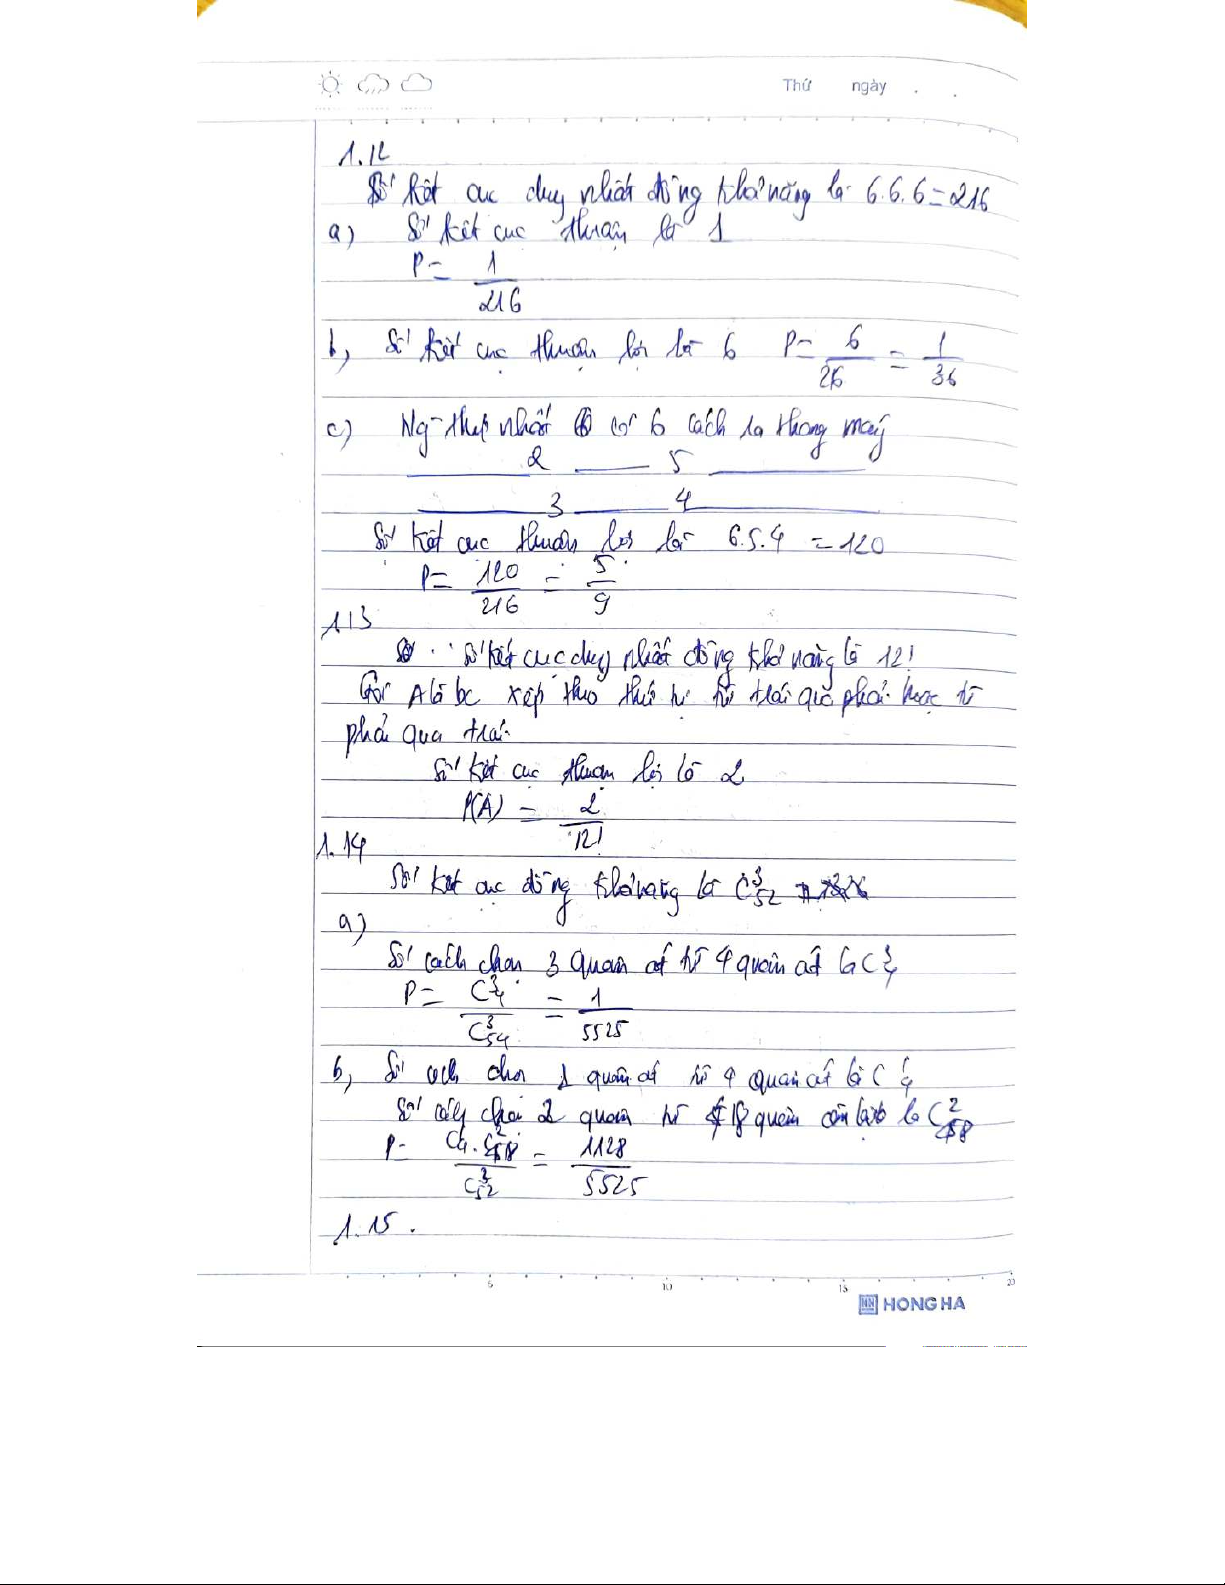 Thứ ngày
1.12
Số kết cục duy nhất đồng khả năng là 6.6.6=216
a) Số kết cục thuận là 1
P= 1/216
b, Số kết cục thuận lợi là 6 P= 6/26 = 1/36
c) Ng thứ nhất có 6 cách ra thang máy
2 5
3 4
Số kết cục thuận lợi là 6.5.4 = 120
P= 120/216 = 5/9
1.13
Số kết cục duy nhất đồng khả năng là 12!
Gọi A là bc xếp theo thứ tự từ trái qua phải hoặc từ
phải qua trái
Số kết cục thuận lợi là 2
P(A) = 2/12!
1.14
Số kết cục đồng khả năng là C³₅₂
a)
Số cách chọn 3 quân át từ 4 quân át là C³₄
P= C³₄/C³₅₄ = 1/5525
b, Số cách chọn 1 quân át từ 4 quân át là C¹₄
Số cách chọn 2 quân từ 48 quân còn lại là C²₄₈
P= C₄.C²₄₈/C³₅₂ = 1128/5525
1.15.
5 10 15 20
HONG HA